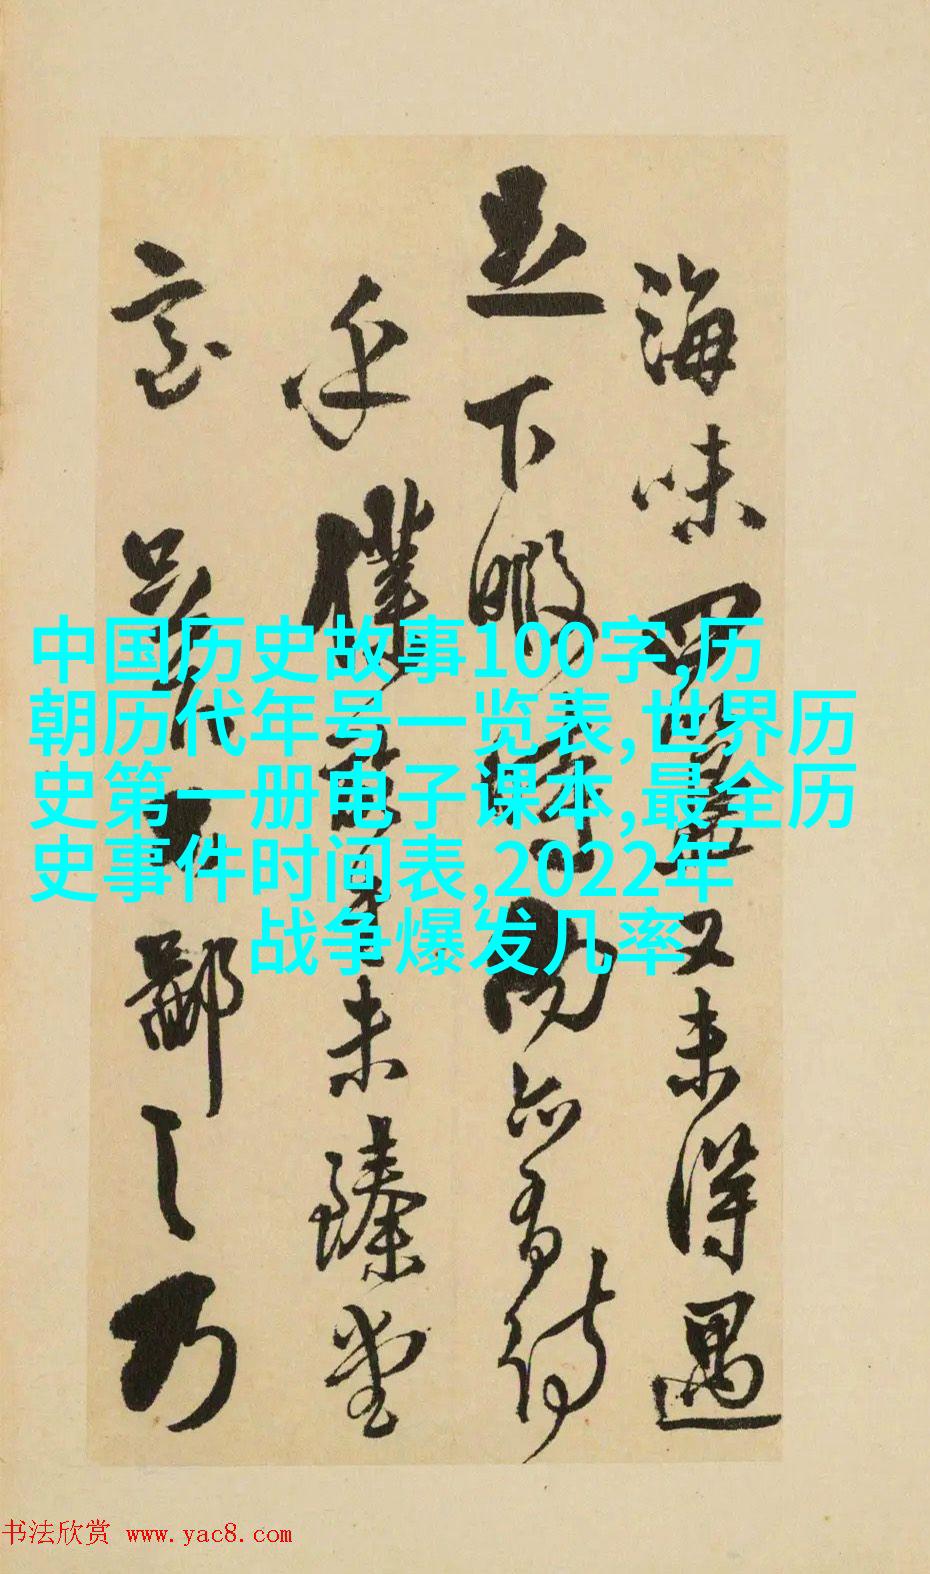 中国历史故事100字,历
朝历代年号一览表,世界历
史第一册电子课本,最全历
史事件时间表,2022年
战争爆发几率
海味四又未得遇
足下暇亦有待
乎僕未臻堂
室鄙之乃
书法欣赏 www.yac8.com